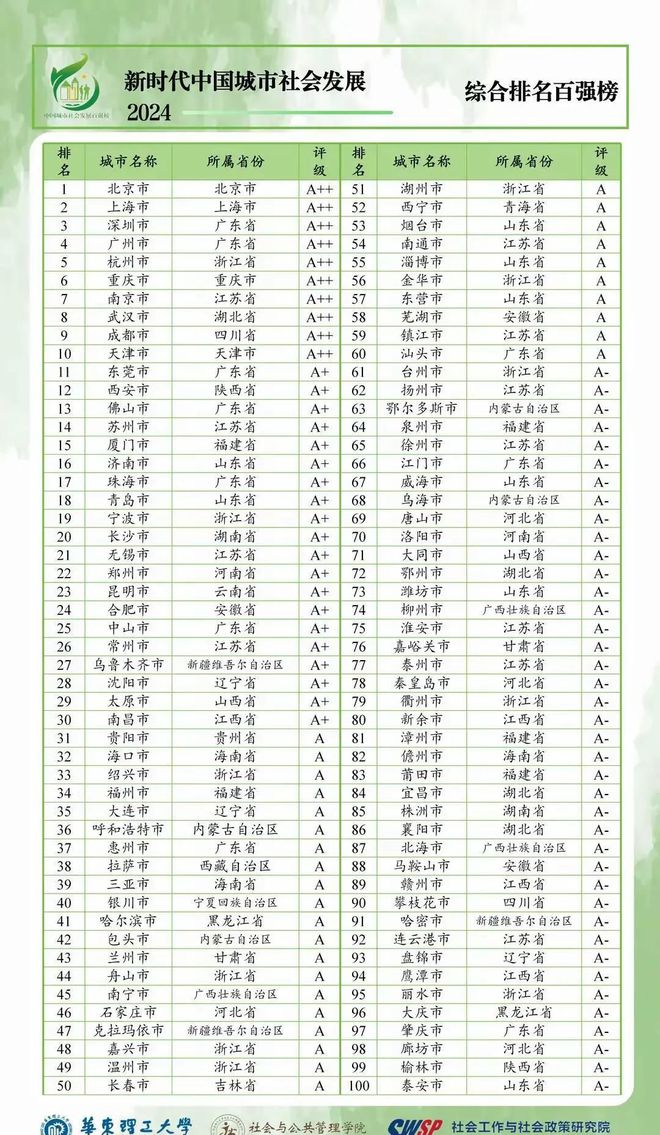 新时代中国城市社会发展
2024
综合排名百强榜
中国城市社会发展百强榜
排名 城市名称 所属省份 评级 排名 城市名称 所属省份 评级
1 北京市 北京市 A++ 51 湖州市 浙江省 A
2 上海市 上海市 A++ 52 西宁市 青海省 A
3 深圳市 广东省 A++ 53 烟台市 山东省 A
4 广州市 广东省 A++ 54 南通市 江苏省 A
5 杭州市 浙江省 A++ 55 淄博市 山东省 A
6 重庆市 重庆市 A++ 56 金华市 浙江省 A
7 南京市 江苏省 A++ 57 东营市 山东省 A
8 武汉市 湖北省 A++ 58 芜湖市 安徽省 A
9 成都市 四川省 A++ 59 镇江市 江苏省 A
10 天津市 天津市 A++ 60 汕头市 广东省 A
11 东莞市 广东省 A+ 61 台州市 浙江省 A-
12 西安市 陕西省 A+ 62 扬州市 江苏省 A-
13 佛山市 广东省 A+ 63 鄂尔多斯市 内蒙古自治区 A-
14 苏州市 江苏省 A+ 64 泉州市 福建省 A-
15 厦门市 福建省 A+ 65 徐州市 江苏省 A-
16 济南市 山东省 A+ 66 江门市 广东省 A-
17 珠海市 广东省 A+ 67 威海市 山东省 A-
18 青岛市 山东省 A+ 68 乌海市 内蒙古自治区 A-
19 宁波市 浙江省 A+ 69 唐山市 河北省 A-
20 长沙市 湖南省 A+ 70 洛阳市 河南省 A-
21 无锡市 江苏省 A+ 71 大同市 山西省 A-
22 郑州市 河南省 A+ 72 鄂州市 湖北省 A-
23 昆明市 云南省 A+ 73 潍坊市 山东省 A-
24 合肥市 安徽省 A+ 74 柳州市 广西壮族自治区 A-
25 中山市 广东省 A+ 75 淮安市 江苏省 A-
26 常州市 江苏省 A+ 76 嘉峪关市 甘肃省 A-
27 乌鲁木齐市 新疆维吾尔自治区 A+ 77 泰州市 江苏省 A-
28 沈阳市 辽宁省 A+ 78 秦皇岛市 河北省 A-
29 太原市 山西省 A+ 79 衢州市 浙江省 A-
30 南昌市 江西省 A+ 80 新余市 江西省 A-
31 贵阳市 贵州省 A 81 漳州市 福建省 A-
32 海口市 海南省 A 82 儋州市 海南省 A-
33 绍兴市 浙江省 A 83 莆田市 福建省 A-
34 福州市 福建省 A 84 宜昌市 湖北省 A-
35 大连市 辽宁省 A 85 株洲市 湖南省 A-
36 呼和浩特市 内蒙古自治区 A 86 襄阳市 湖北省 A-
37 惠州市 广东省 A 87 北海市 广西壮族自治区 A-
38 拉萨市 西藏自治区 A 88 马鞍山市 安徽省 A-
39 三亚市 海南省 A 89 赣州市 江西省 A-
40 银川市 宁夏回族自治区 A 90 攀枝花市 四川省 A-
41 哈尔滨市 黑龙江省 A 91 哈密市 新疆维吾尔自治区 A-
42 包头市 内蒙古自治区 A 92 连云港市 江苏省 A-
43 兰州市 甘肃省 A 93 盘锦市 辽宁省 A-
44 舟山市 浙江省 A 94 鹰潭市 江西省 A-
45 南宁市 广西壮族自治区 A 95 丽水市 浙江省 A-
46 石家庄市 河北省 A 96 大庆市 黑龙江省 A-
47 克拉玛依市 新疆维吾尔自治区 A 97 肇庆市 广东省 A-
48 嘉兴市 浙江省 A 98 廊坊市 河北省 A-
49 温州市 浙江省 A 99 榆林市 陕西省 A-
50 长春市 吉林省 A 100 泰安市 山东省 A-
华东理工大学 社会与公共管理学院 CWSP 社会工作与社会政策研究院